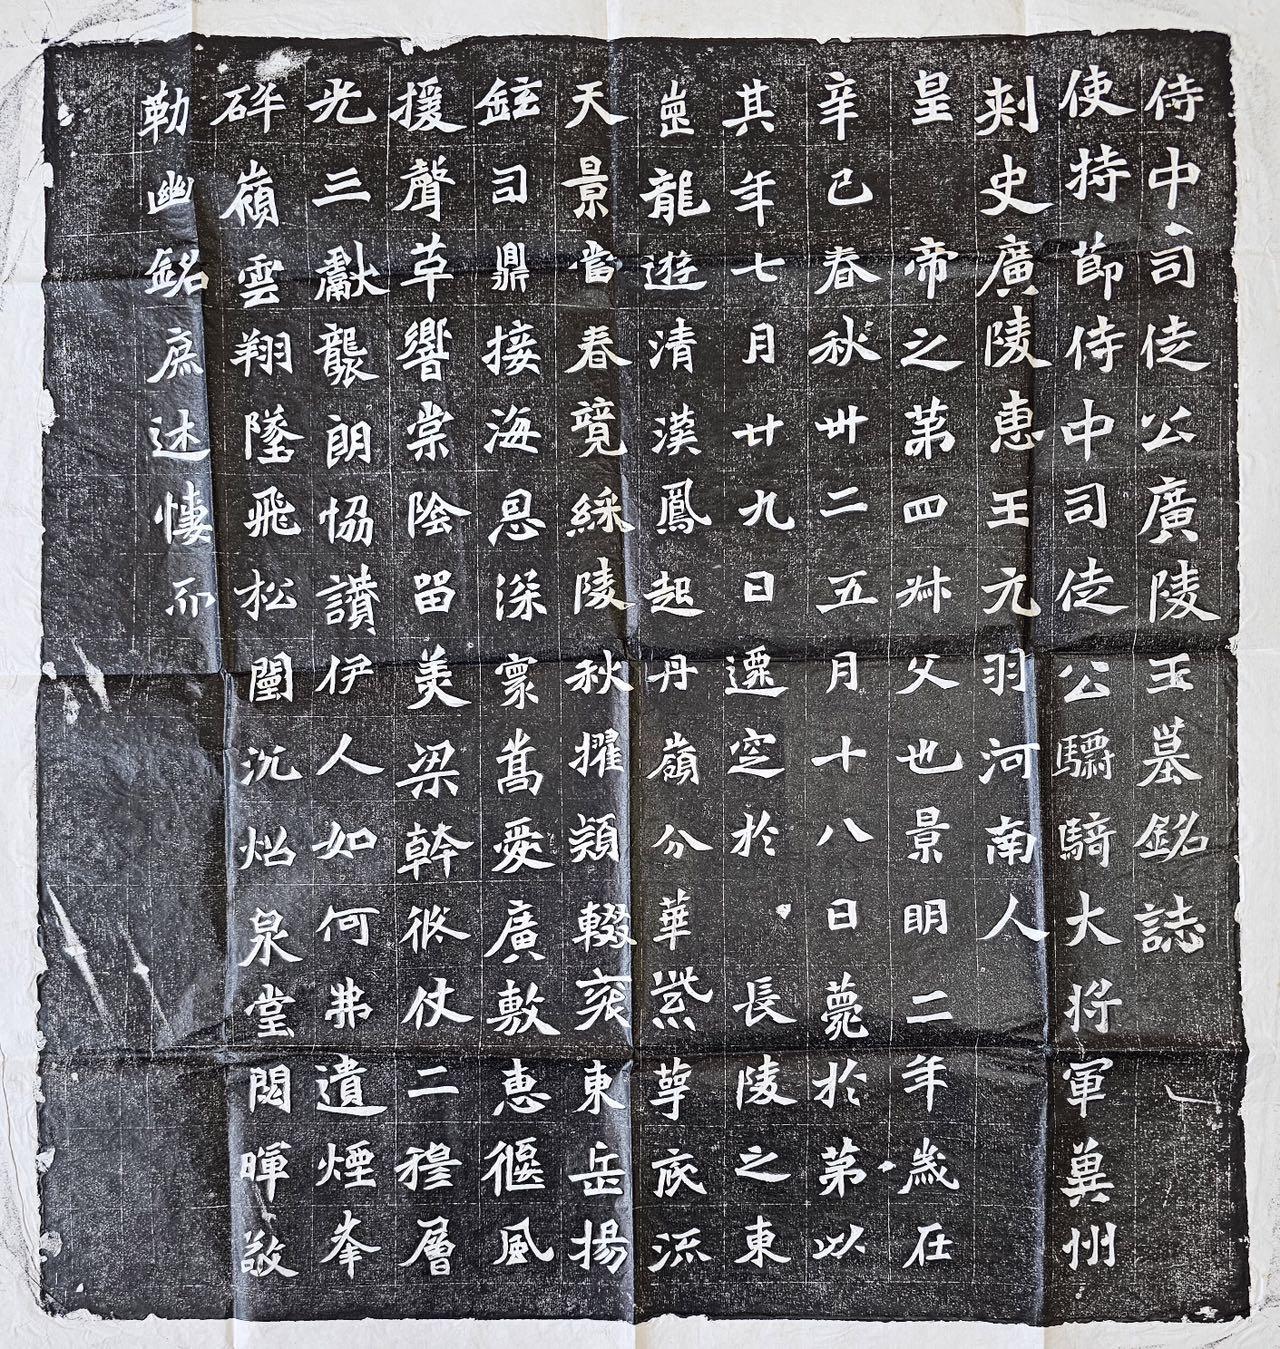 侍中司徒公廣陵王墓銘誌
使持節侍中司徒公驃騎大將軍冀州
刺史廣陵惠王元羽河南人
皇帝之第四叔父也景明二年歲在
辛巳春秋卅二五月十八日薨於第以
其年七月廿九日遷窆於長陵之東
崗龍遊清漢鳳起丹嶺分華紫萼底流
天景當春競綵陵秋擢穎輟袞東岳揚
鉉司鼎接海恩深寰嵩愛廣敷惠偃風
援聲草響棠陰留美梁幹終仗二穆層
光三獻襲朗協讚伊人如何弗遺煙峯
碎嶺雲翔墜飛松闈沉炤泉堂閟暉敬
勒幽銘庶述悽而